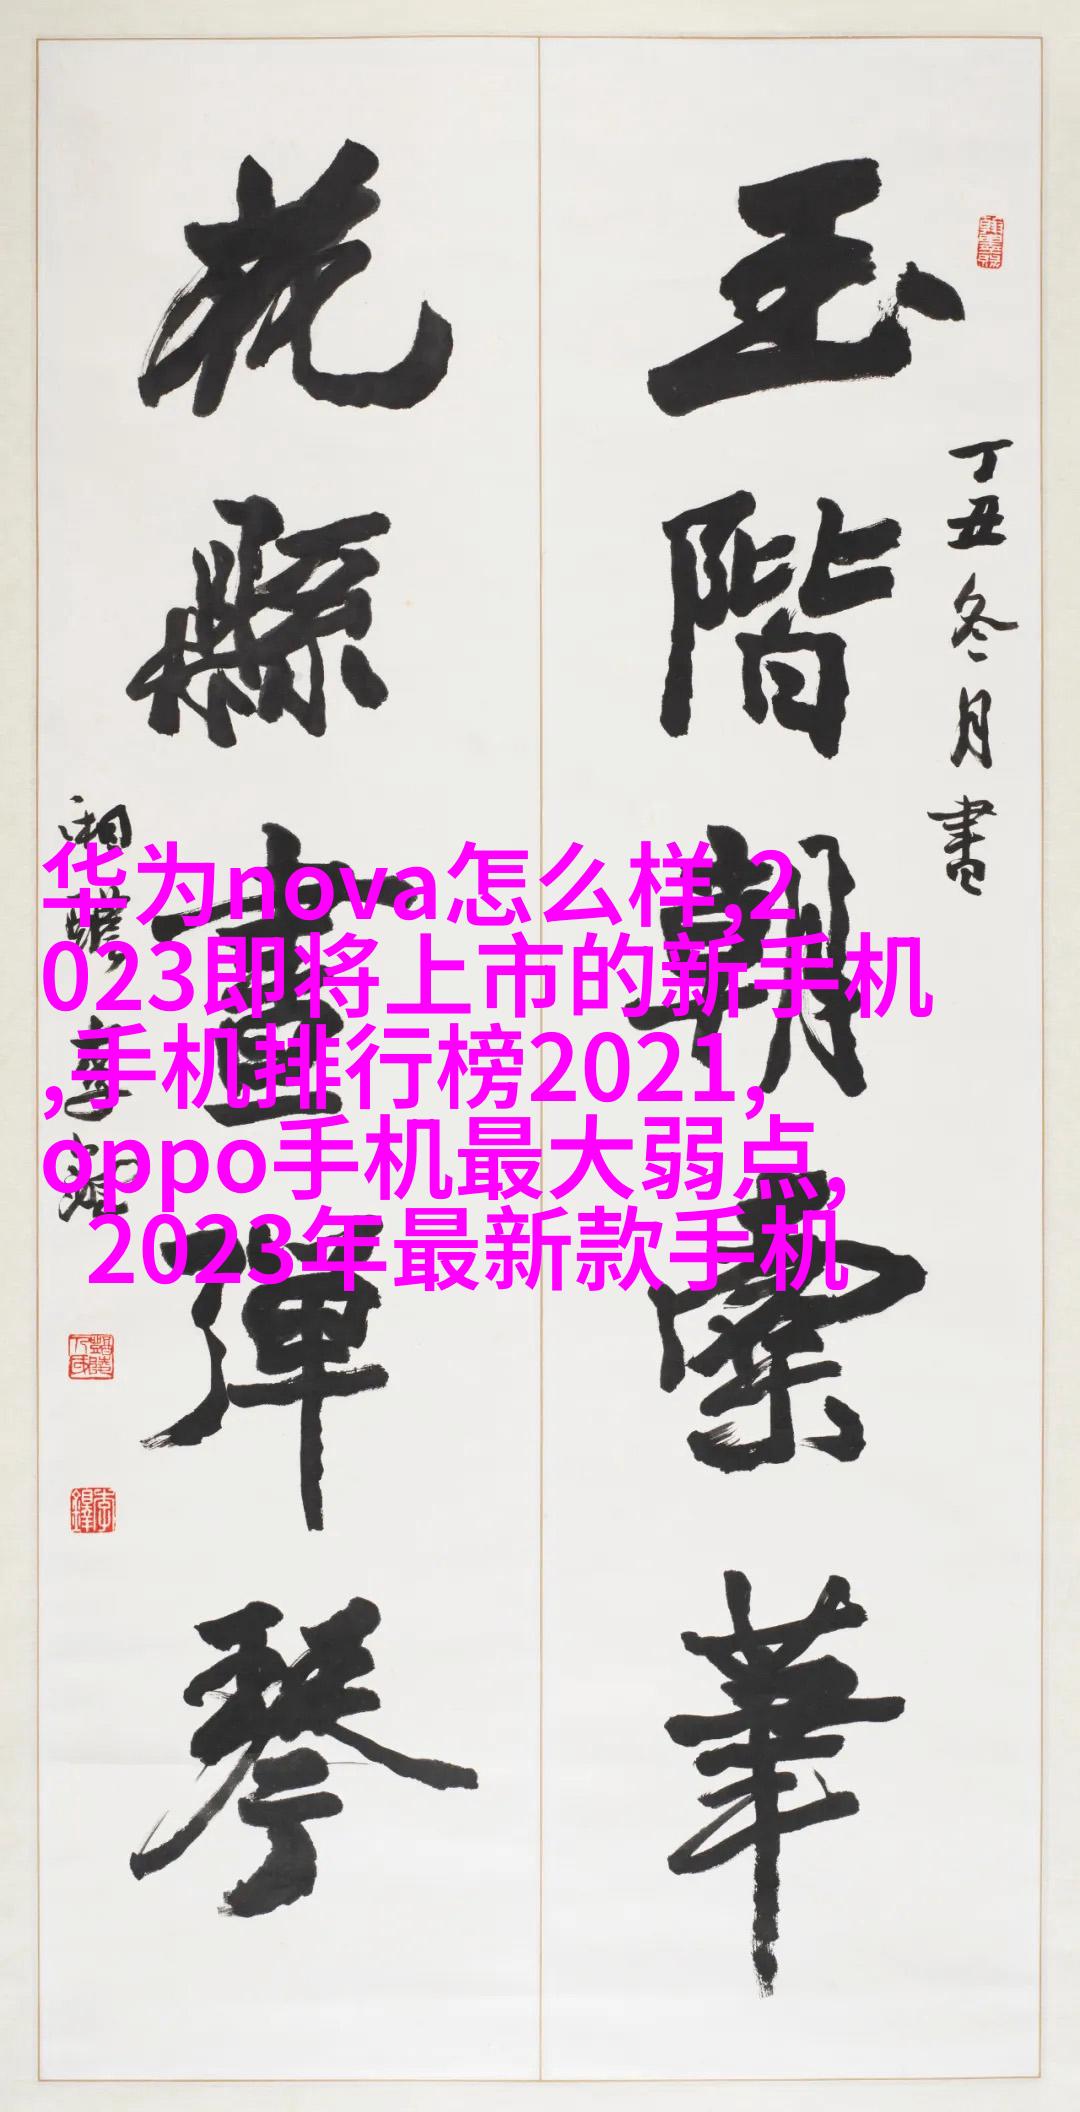 丁丑冬月書
玉階朝華
花縣彈琴
湘潭李鐸
华为nova怎么样,2
023即将上市的新手机
,手机排行榜2021,
oppo手机最大弱点,
2023年最新款手机